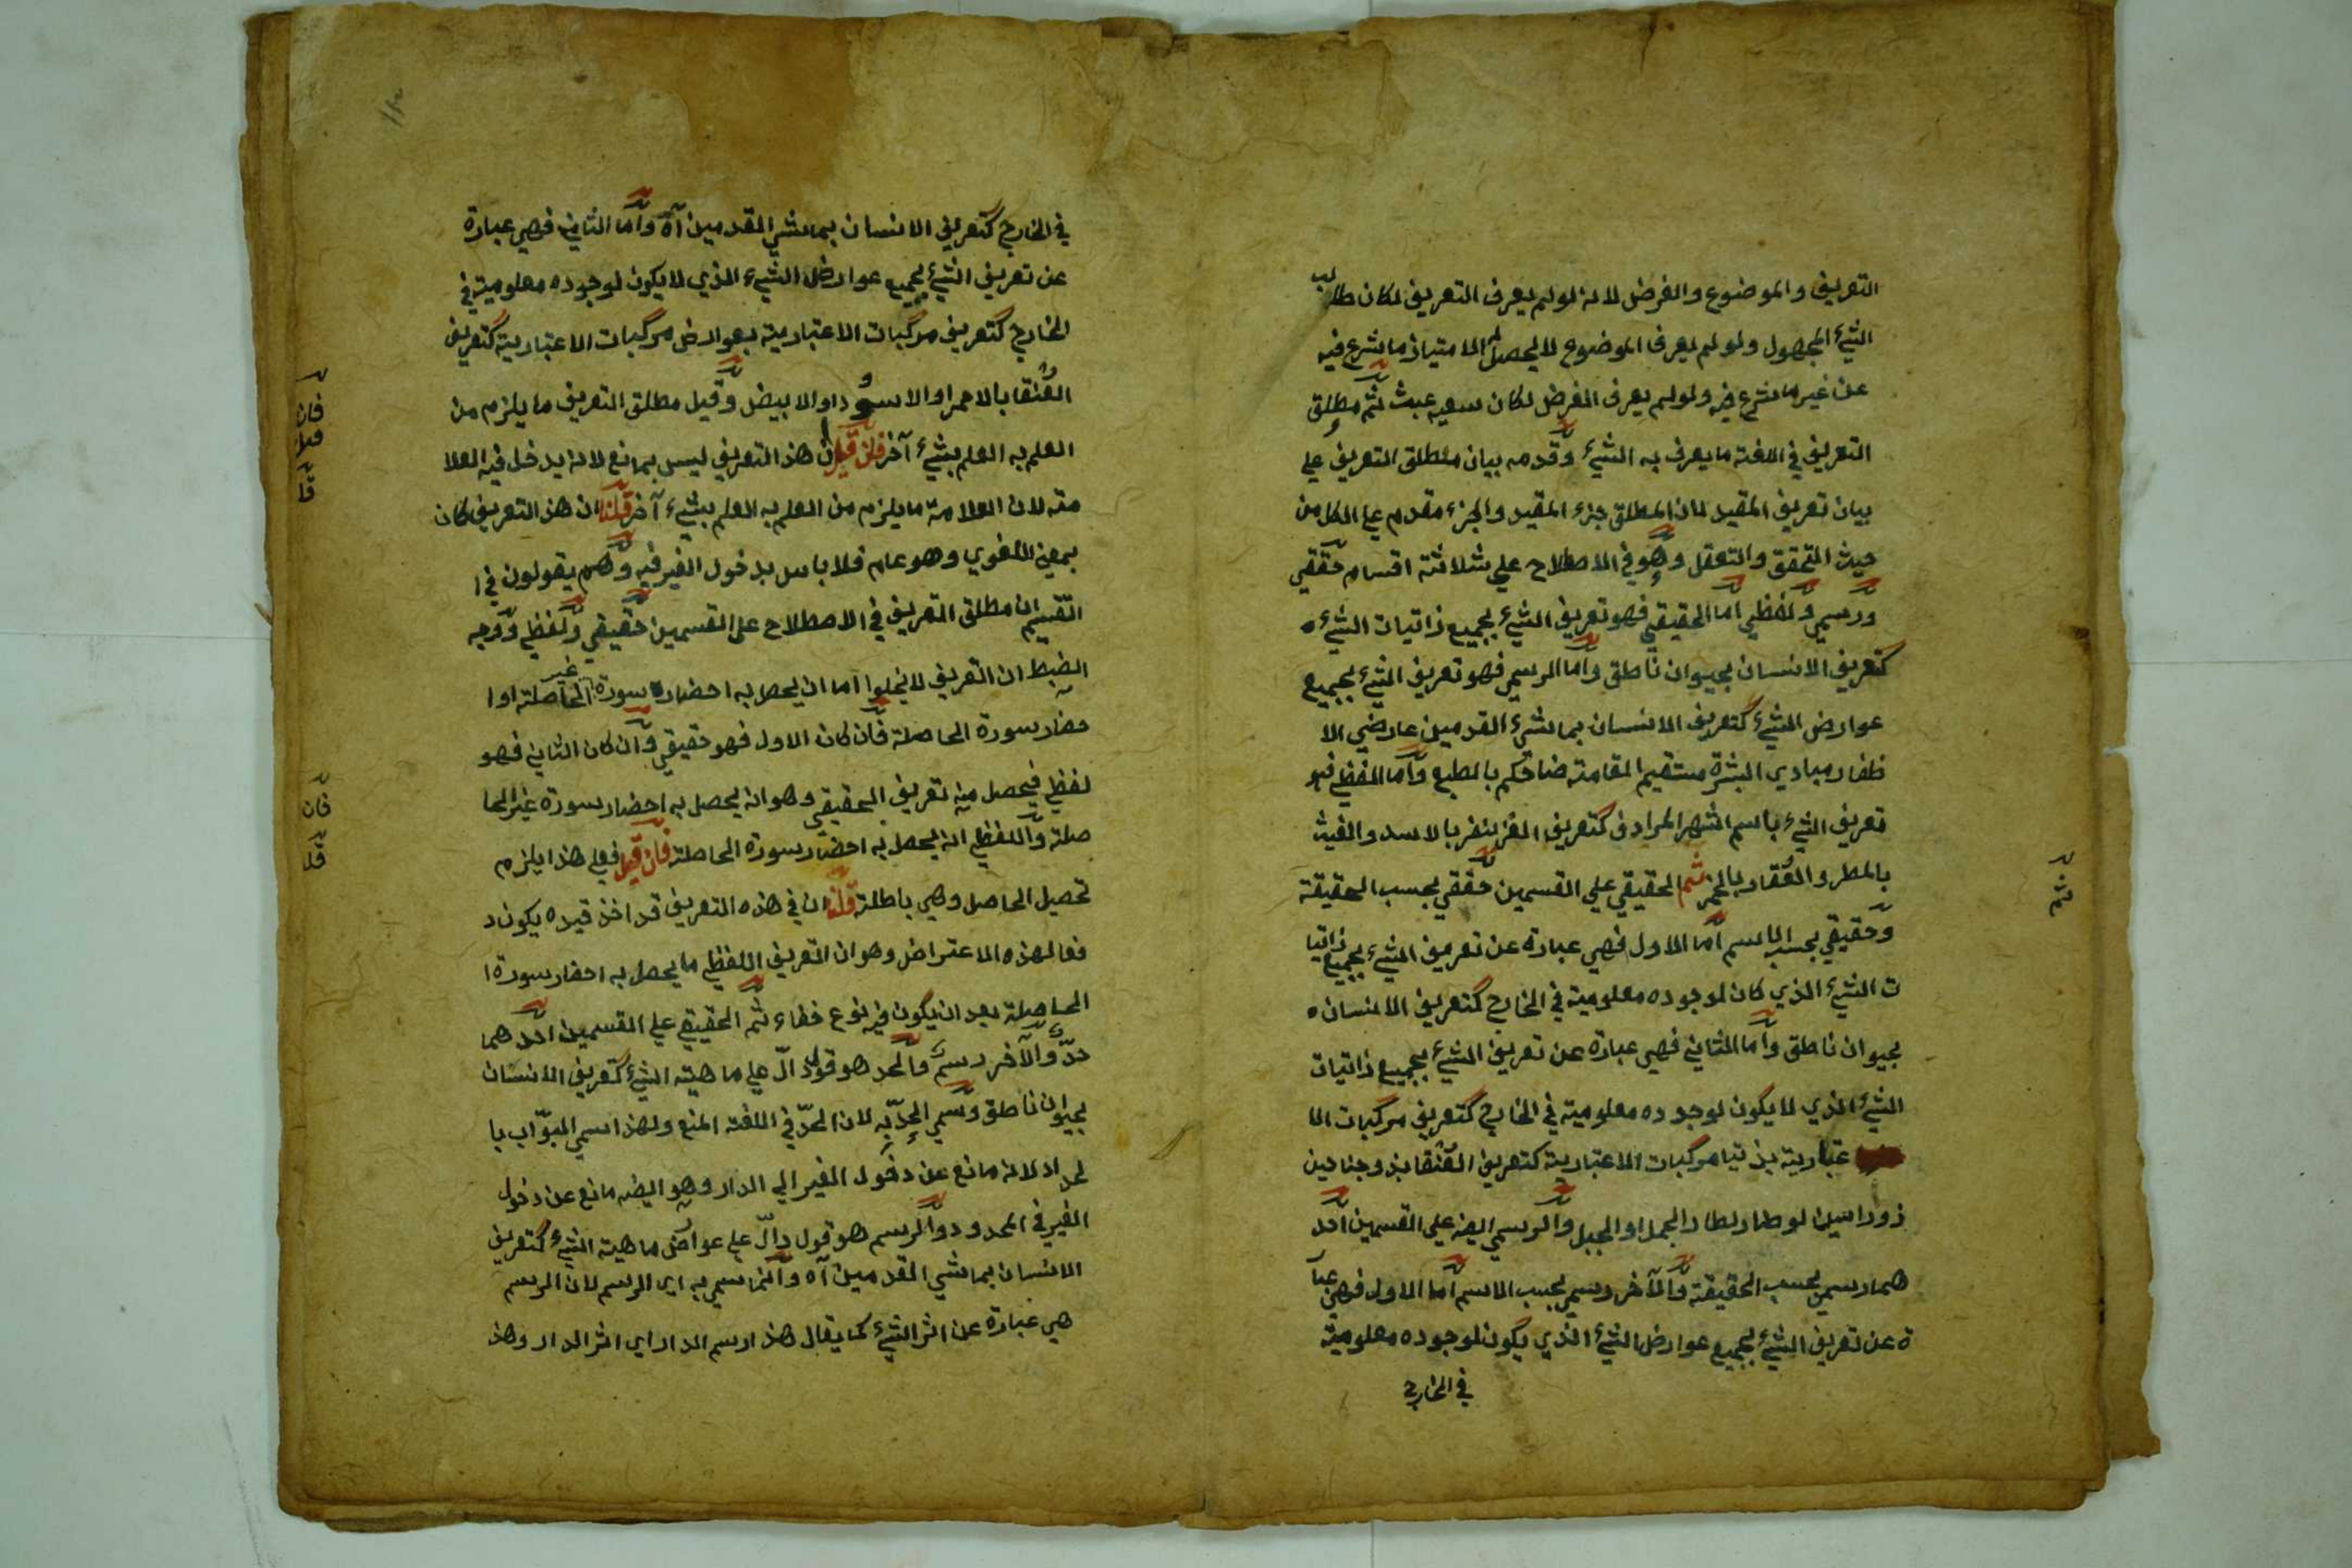 التعريف والموضوع والغرض لانه لو لم يعرف التعريف لكان طالب
الشيء المجهول ولو لم يعرف الموضوع لا يحصل له الامتياز ما شرع فيه
عن غير ما شرع فيه ولو لم يعرف الغرض لكان سعيه عبث ثم مطلق
التعريف في اللغة ما يعرف به الشيء وقدمه بيان مطلق التعريف علي
بيان تعريف المقيد لان المطلق جزء المقيد والجزء مقدم علي الكل من
حيث التحقق والتعقل وهو في الاصطلاح علي ثلاثة اقسام حققي
ورسمي ولفظي اما الحقيقي فهو تعريف الشيء بجميع ذاتيات الشيء ه
كتعريف الانسان بحيوان ناطق واما الرسمي فهو تعريف الشيء بجميع
عوارض الشيء كتعريف الانسان بماشيء القدمين عارضي الا
ظفار مبادي البشرة مستقيم القامة ضاحكم بالطبع واما اللفظي فهو
تعريف الشيء باسم اشهر المرادف كتعريف الغزنفر بالاسد والغيث
بالمطر والعقار بالخمر ثم الحقيقي علي القسمين حققي بحسب الحقيقة
وحقيقي بحسب الاسم اما الاول فهي عبارة عن تعريف الشيء بجميع ذاتيا
ت الشيء الذي كان لوجوده معلومية في الخارج كتعريف الانسان ه
بحيوان ناطق واما الثاني فهي عبارة عن تعريف الشيء بجميع ذاتيات
الشيء الذي لا يكون لوجوده معلومية في الخارج كتعريف مركبات الا
عتبارية بذتيا مركبات الاعتبارية كتعريف العنقا بذو جناحين
ذو راسين لو طار لطار الجمل او الجبل والرسمي ايضه علي القسمين احد
هما رسمي بحسب الحقيقة والآخر رسمي بحسب الاسم اما الاول فهي عبا
ة عن تعريف الشيء بجميع عوارض الشيء الذي يكون لوجوده معلومية
في الخارج
ثم
في الخارج كتعريف الانسان بماشي القدمين آه واما الثاني فهي عبارة
عن تعريف الشيء بجميع عوارض الشيء الذي لا يكون لوجوده معلومية في
الخارج كتعريف مركبات الاعتبارية بعوارض مركبات الاعتبارية كتعريف
العنقا بالاحمر او الاسود او الابيض وقيل مطلق التعريف ما يلزم من
العلم به العلم بشيء آخر فان قيل ان هذ التعريف ليس بمانع لانه يدخل فيه العلا
مة لان العلامة ما يلزم من العلم به العلم بشيء آخر قلنا ان هذ التعريف كان
بمعني اللغوي وهو عام فلا باس بدخول الغير فيه وهم يقولون في ا
لتقسيم ان مطلق التعريف في الاصطلاح علي القسمين حقيقي ولفظي ووجه
الضبط ان التعريف لا يخلوا اما ان يحصل به احضار سورة غير الحاصلة او ا
حضار سورة الحاصلة فان كان الاول فهو حقيقي وان كان الثاني فهو
لفظي فيحصل منه تعريف الحقيقي وهو ان يحصل به احضار سورة غير الحا
صلة واللفظي ان يحصل به احضار سورة الحاصلة فان قيل فعلي هذا يلزم
تحصيل الحاصل وهي باطلة قلنا ان في هذه التعريف قد اخذ قيده يكون د
فعا لهذه الاعتراض وهو ان التعريف اللفظي ما يحصل به احضار سورة ا
الحاصلة بعد ان يكون فيه نوع خفاء ثم الحقيقي علي القسمين احدهما
حدّ والآخر رسم والحد هو قول دالّ علي ماهيته الشيء كتعريف الانسان
بحيوان ناطق وسمي الحدّ به لان الحدّ في اللغة المنع ولهذا سمي البوّاب با
لحداد لانه مانع عن دخول الغير الي الدار وهو ايضه مانع عن دخول
الغير في المحدود والرسم هو قول دالّ علي عوارض ماهية الشيء كتعريف
الانسان بماشي القدمين آه وانما سمي به اي الرسم لان الرسم
هي عبارة عن اثر الشيء كما يقال هذا رسم الدار اي اثر الدار وهذ
فان
قيل
قلـ
فان
قلـ